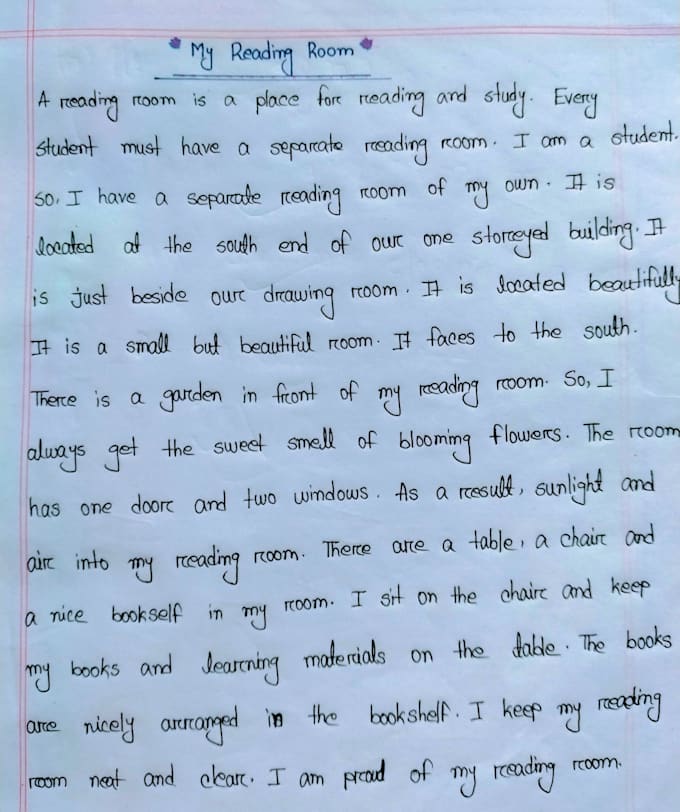 My Reading Room
A reading room is a place for reading and study. Every
student must have a separate reading room. I am a student.
So, I have a separate reading room of my own. It is
located at the south end of our one storeyed building. It
is just beside our drawing room. It is located beautifully
It is a small but beautiful room. It faces to the south.
There is a garden in front of my reading room. So, I
always get the sweet smell of blooming flowers. The room
has one door and two windows. As a result, sunlight and
air into my reading room. There are a table, a chair and
a nice bookself in my room. I sit on the chair and keep
my books and learning materials on the table. The books
are nicely arranged in the bookshelf. I keep my reading
room neat and clear. I am proud of my reading room.